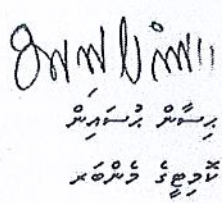 ޙިސާން ޙުސައިން
ކޮމިޓީގެ މެންބަރ